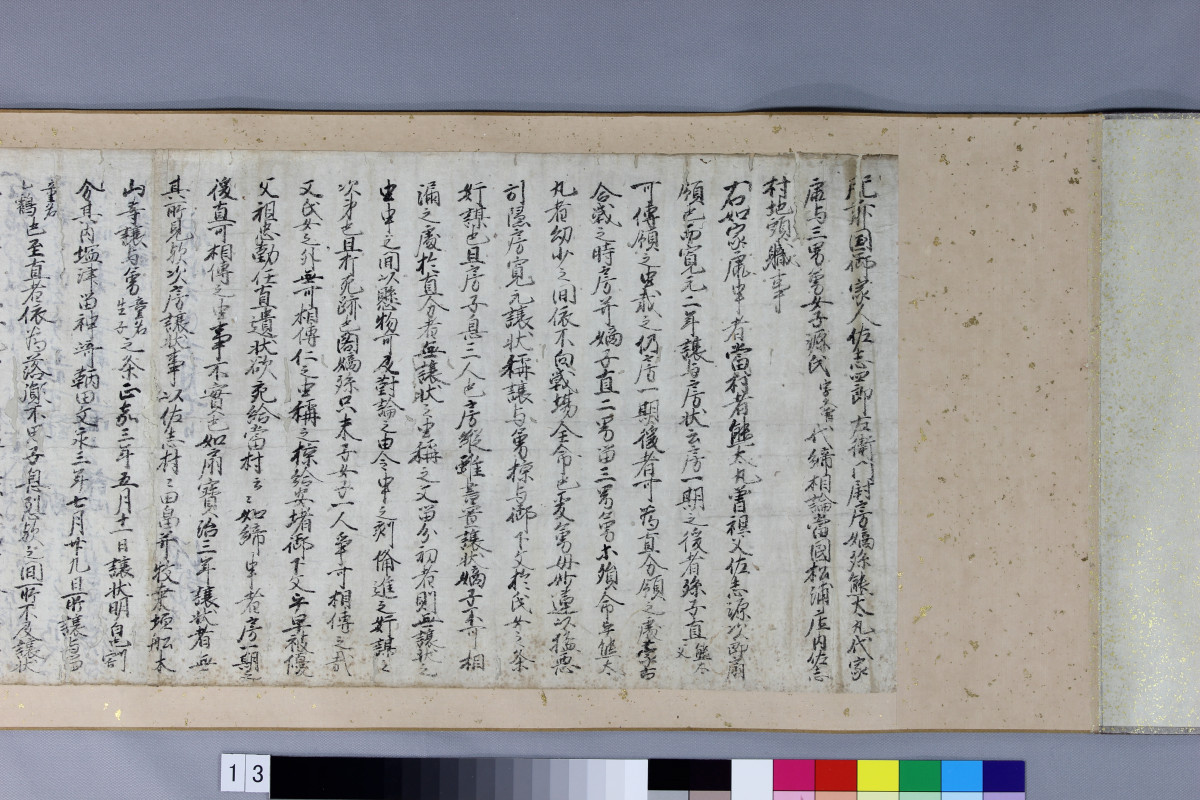 肥前国御家人佐志四郎左衛門尉房嫡孫熊太丸代家
広与三男勇女子源氏字童代締相論当国松浦庄内佐志
村地頭職事
右如家広申者当村者熊太丸曽祖父佐志源次郎扇
領也而寛元二年譲与房状云房一期之後者孫子直熊太父
可傳領之由載之仍房一期後者可為直分領之處蒙古
合戦之時房并嫡子直二男留三男勇等殞命畢熊太
丸者幼少之間依不向戦場全命也爰勇母妙蓮以猛悪
引隠房寛元譲状稱譲与勇掠与御下文於氏女之条
奸謀也且房子息三人也房縦雖書置譲状嫡子争可相
漏之處於直分者無譲状之由稱之又留分初者則無譲状之
由申之間以懸物可及對論之由令申之刻備進之奸謀之
次第也且打死跡也閣嫡孫只末子女子一人争可相傳之哉
又氏女之外無可相傳仁之由稱之掠給安堵御下文畢早被優
父祖忠勤任直遺状欲充給当村云々如締申者房一期之
後直可相傳之由事不實也如扇寶治三年譲状者無
其所見歟次房譲状事以佐志村々田畠并牧葉垣船木
山等譲与勇童名生子之条正嘉三年五月十一日譲状明白也割
分其内塩津留神崎鞆田文永三年七月廿九日所譲与留
童名乙鶴也至直者依為落胤不思子息列歟之間所不及譲状